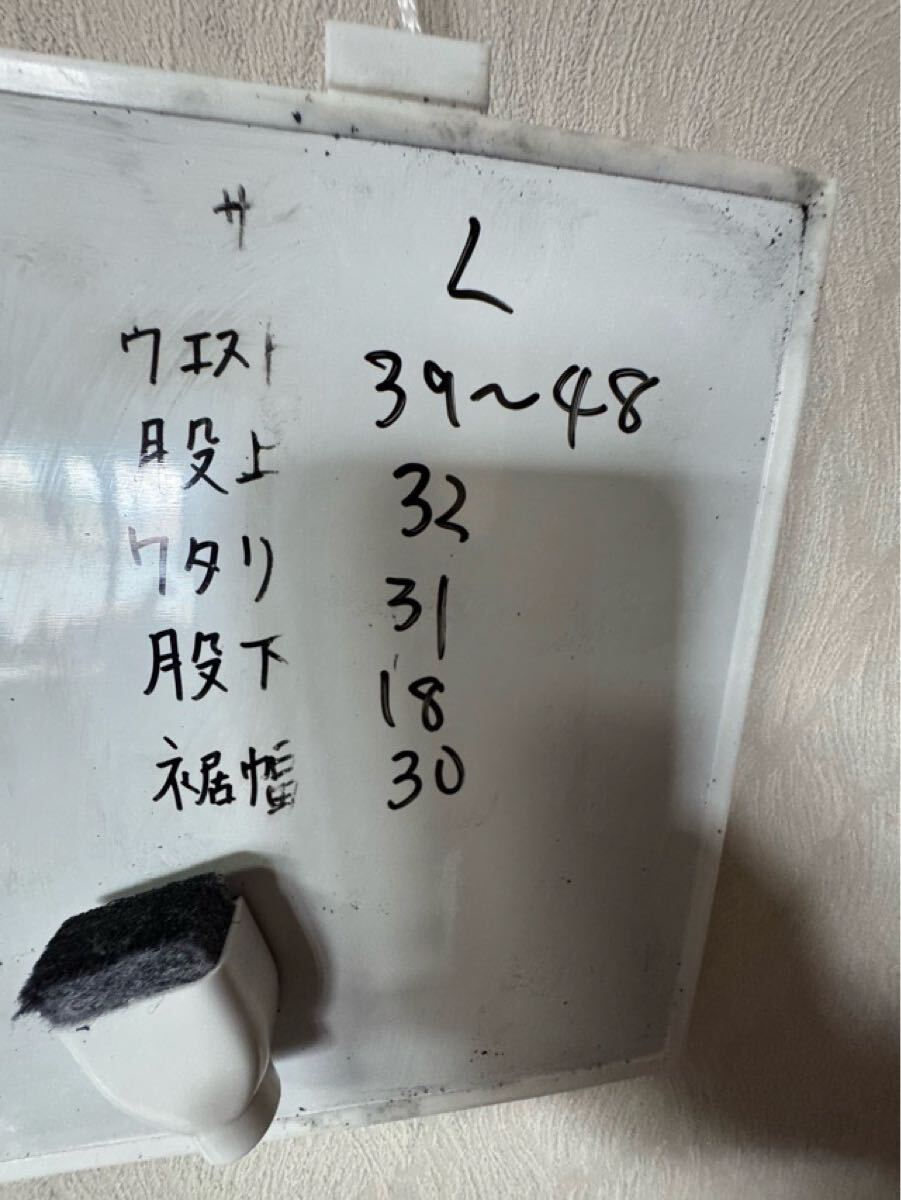 サ L
ウエスト 39~48
股上 32
ワタリ 31
股下 18
裾幅 30